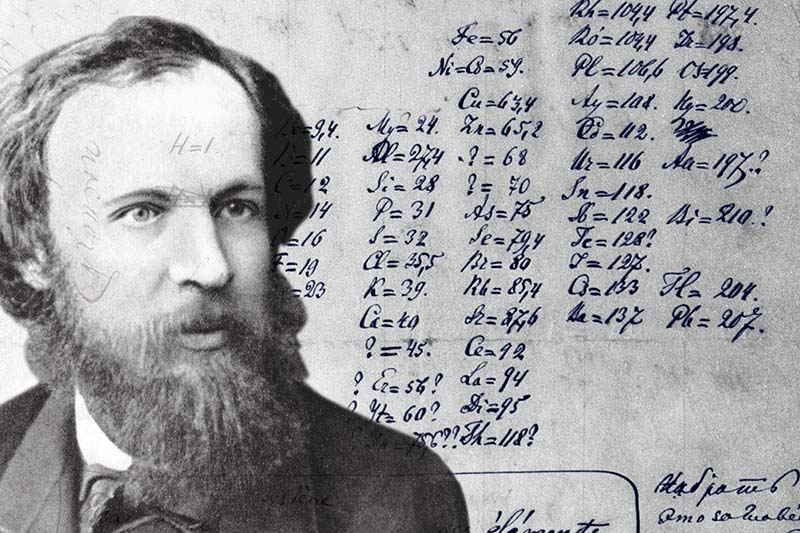 Rh=104,4 Pt=197,4.
Fe=56 Ro=104,4 Ir=198.
Ni=Co=59. Pl=106,6 Os=199.
Cu=63,4 Ag=108. Hg=200.
=9,4. Mg=24. Zn=65,2 Cd=112.
H=1.
B=11 Al=27,4 ?=68 Ur=116 Au=197.?
C=12 Si=28 ?=70 Sn=118.
N=14 P=31 As=75 Sb=122 Bi=210.?
O=16 S=32 Se=79,4 Te=128?
F=19 Cl=35,5 Br=80 J=127.
=23 K=39. Rb=85,4 Cs=133 Tl=204.
Ca=40 Sr=87,6 Ba=137 Pb=207.
?=45. Ce=92
? Er=56? La=94
? Yt=60? Di=95
=75,6?? Th=118?
Набрать